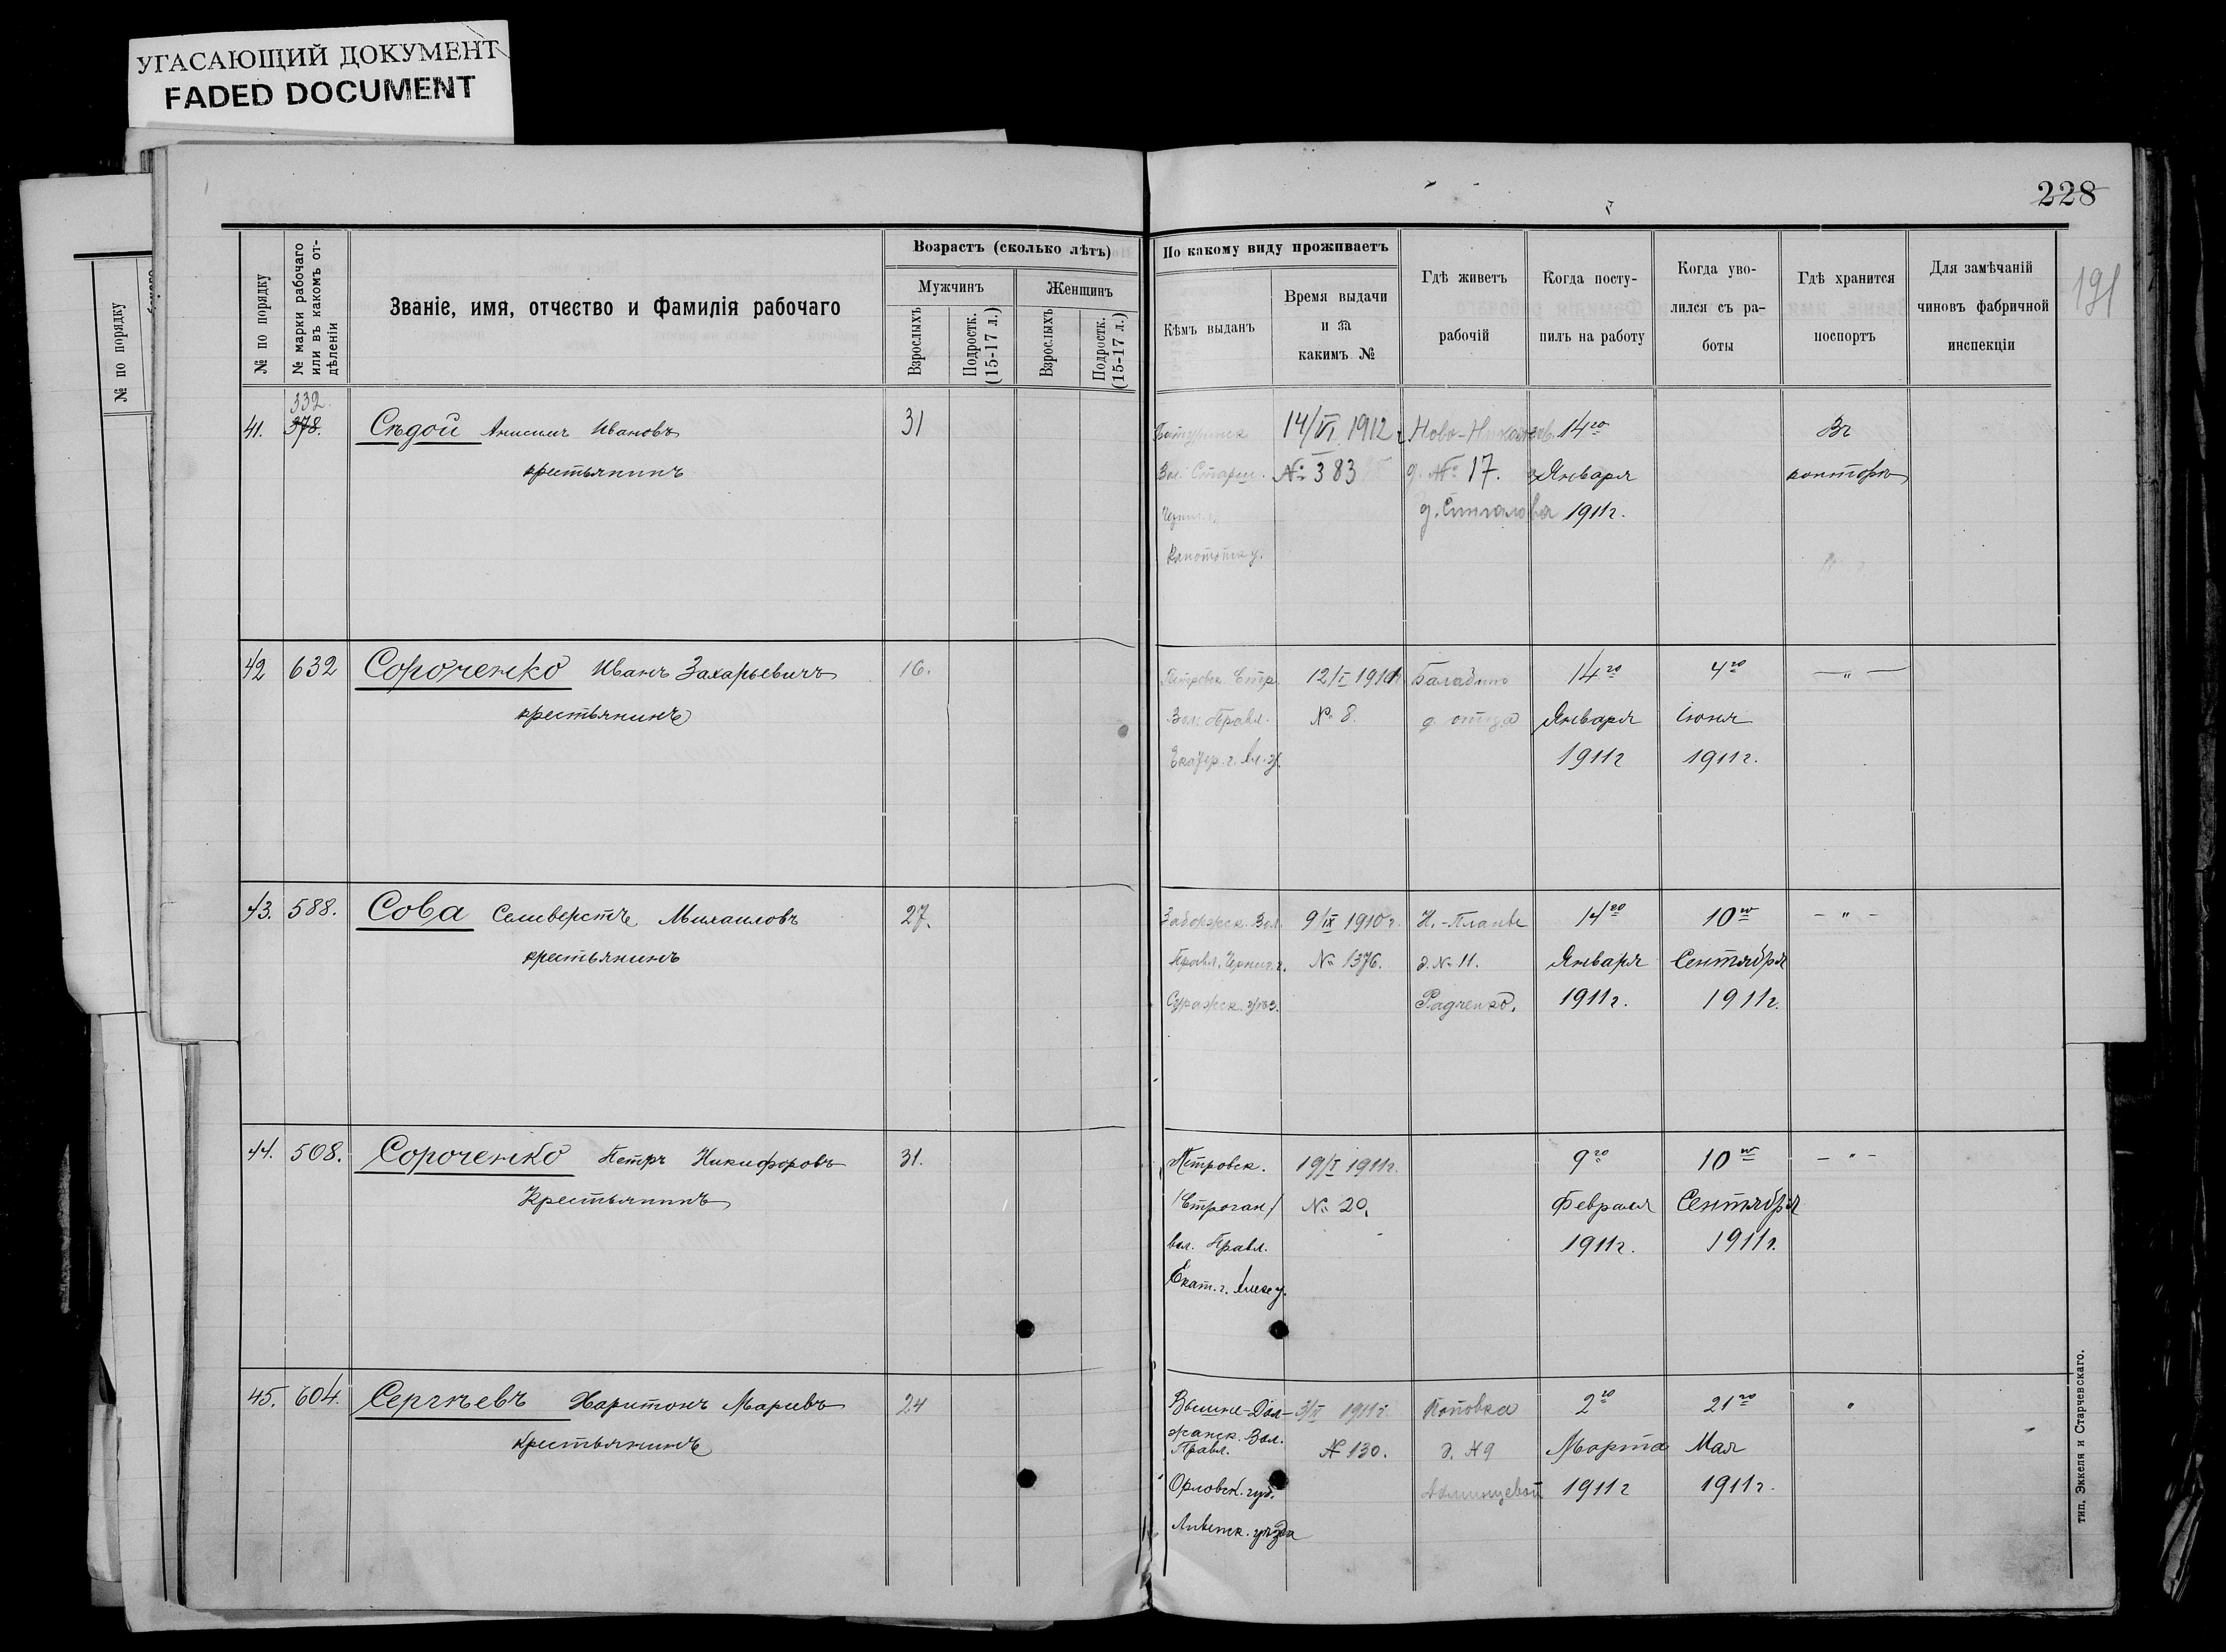 УГАСАЮЩИЙ ДОКУМЕНТ
FADED DOCUMENT
228
191
№ по порядку
№ по порядку
№ марки рабочаго
или въ какомъ от-
дѣленіи
Званіе, имя, отчество и Фамилія рабочаго
Возрастъ (сколько лѣтъ)
Мужчинъ
Женщинъ
Взрослыхъ
Подростк.
(15-17 л.)
Взрослыхъ
Подростк.
(15-17 л.)
По какому виду проживаетъ
Кѣмъ выданъ
Время выдачи
и за
какимъ №
Гдѣ живетъ
рабочій
Когда посту-
пилъ на работу
Когда уво-
лился съ ра-
боты
Гдѣ хранится
поспортъ
Для замѣчаній
чиновъ фабричной
инспекціи
41.
332
378.
Сѣдой Анисимъ Ивановъ
крестьянинъ
31
Батуринск
Вол. Старш.
Конотопск у.
14/VI 1912 г
№ 383
Ново-Николаев.
д. № 17.
14го
Января
1911 г.
Въ
конторѣ
42
632
Сороченко Иванъ Захарьевичъ
крестьянинъ
16.
Петровск. Стр.
Вол. Правл.
Екатер. г. Ал. у.
12/I 1911
№ 8.
д. отца
14го
Января
1911 г
4го
Іюня
1911 г.
— „ —
43.
588.
Сова Селиверстъ Михаиловъ
крестьянинъ
27.
Вол.
Правл. Черниг. г.
Суражск. уѣз.
9/IX 1910 г.
№ 1376.
Н.-Планъ
д. № 11.
Радченко.
14го
Января
1911 г.
10го
Сентября
1911 г.
— „ —
44.
508.
Сороченко Петръ Никифоровъ
Крестьянинъ
31.
Петровск.
/Строган/
вол. Правл.
Екат. г. Алек у.
19/I 1911 г.
№ 20.
9го
Февраля
1911 г.
10го
Сентября
1911 г.
— „ —
45.
604.
Сергѣевъ Харитонъ Марievъ
Крестьянинъ
24
Вышне-Дол-
жанск. Вол.
Правл.
Орловск. губ.
Ливенск. уѣзда
3/II 1911 г.
№ 130.
Поповка
д. № 9
2го
Марта
1911 г
21го
Мая
1911 г.
„
тип. Эккеля и Старчевскаго.